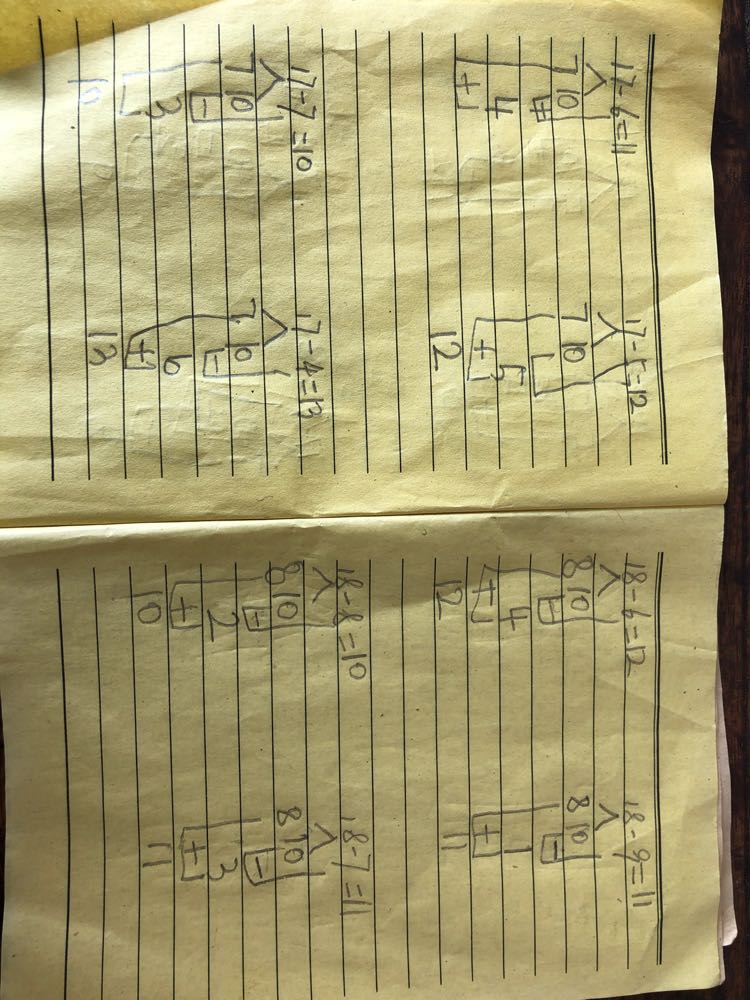 17-6=11 17-5=12
7 10 7 10
-
4 5
+ +
12
17-7=10 17-4=13
7 10 7 10
- -
3 6
- +
10 13
18-6=12 18-9=11
8 10 8 10
- -
4 1
+ +
12 11
18-8=10 18-7=11
8 10 8 10
- -
2 3
+ +
10 11